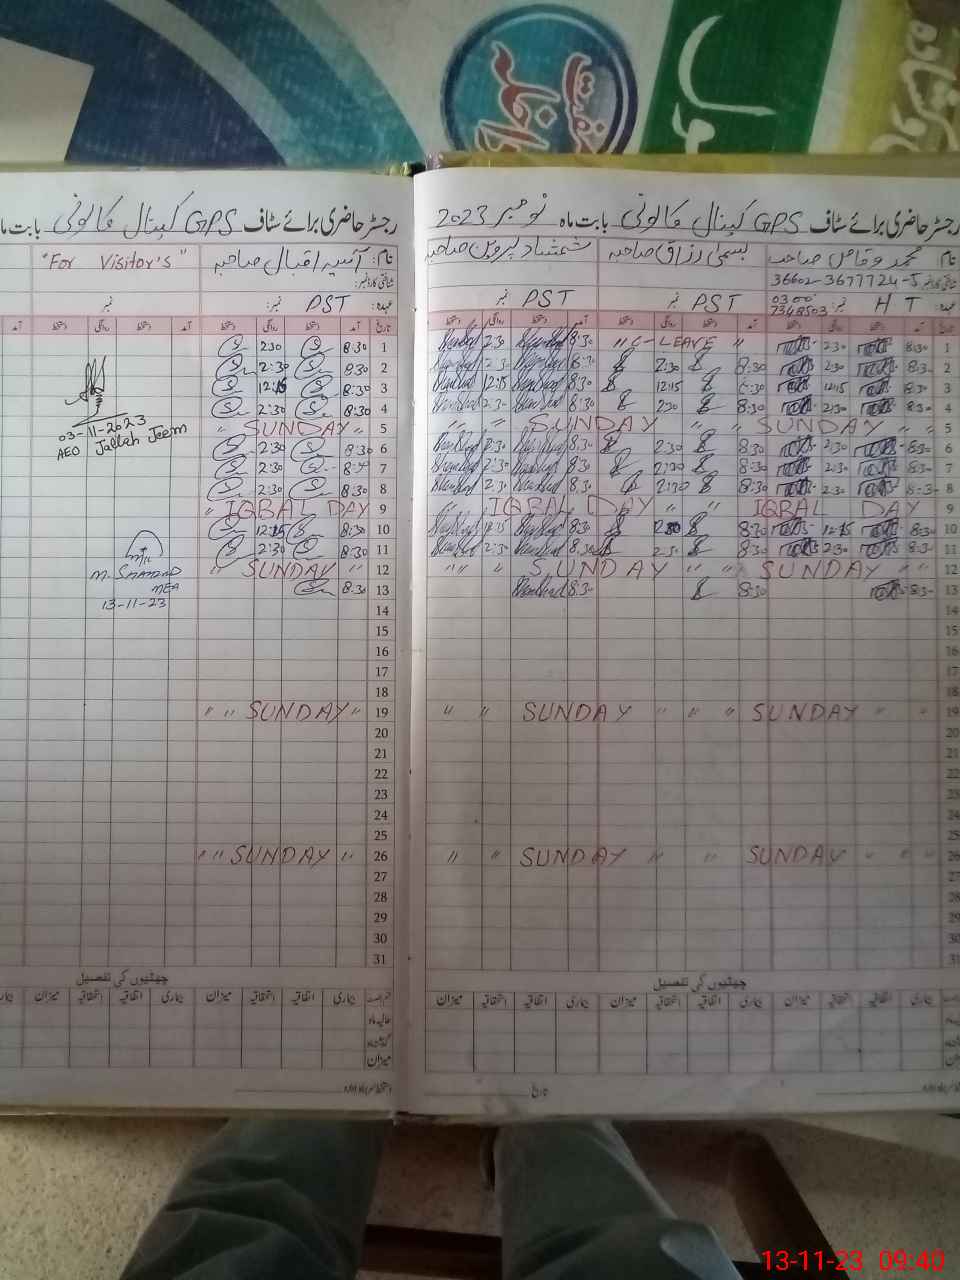 رجسٹر حاضری برائے سٹاف GPS کینال کالونی بابت ماہ نومبر 2023
نام: محمد وقاص صاحب
بسمیٰ رزاق صاحبہ
شمشاد پروین صاحبہ
شناختی کارڈ نمبر 36602-3677724-5
عہدہ: H T نمبر: 0300 7348503
PST نمبر
PST نمبر
تاریخ آمد دستخط روانگی دستخط آمد دستخط روانگی دستخط آمد دستخط روانگی دستخط
1 8:30 2:30 " C-LEAVE " 8:30 2:30
2 8:30 2:30 8:30 2:30 8:30 2:3-
3 8:30 12:15 8:30 12:15 8:30 12:15
4 8:3- 2:30 8:30 2:30 8:30 2:3-
5 " " SUNDAY " " SUNDAY " "
6 8:30 2:30 8:30 2:30 8:30 2:30
7 8:30 2:30 8:30 2:30 8:30 2:30
8 8:3- 2:30 8:30 2:30 8:30 2:30
9 IQBAL DAY " " IQBAL DAY "
10 8:30 12:15 8:30 8:30 12:15
11 8:3- 2:30 8:30 2:30 8:30 2:3-
12 " " SUNDAY " " SUNDAY " "
13 8:3- 8:30 8:3-
14
15
16
17
18
19 " " SUNDAY " " " SUNDAY " "
20
21
22
23
24
25
26 " " SUNDAY " " SUNDAY " "
27
28
29
30
31
چھٹیوں کی تفصیل
بیماری اتفاقیہ استحقاقیہ میزان بیماری اتفاقیہ استحقاقیہ میزان بیماری اتفاقیہ استحقاقیہ میزان
میزان
تاریخ
رجسٹر حاضری برائے سٹاف GPS کینال کالونی بابت ماہ
نام: آسیہ اقبال صاحبہ
"For Visitor's"
شناختی کارڈ نمبر:
عہدہ: PST نمبر:
نمبر
تاریخ آمد دستخط روانگی دستخط آمد دستخط روانگی دستخط آمد
1 8:30 2:30
2 8:30 2:30
3 8:30 12:15
4 8:30 2:30
03-11-2023
5 " SUNDAY " "
AEO Jallah Jeem
6 8:30 2:30
7 8:30 2:30
8 8:30 2:30
9 " IQBAL DAY
10 8:30 12:15
11 8:30 2:30
12 " SUNDAY " "
M. SHAHZAD
13 8:30
MEA
13-11-23
14
15
16
17
18
19 " " SUNDAY "
20
21
22
23
24
25
26 " " SUNDAY "
27
28
29
30
31
چھٹیوں کی تفصیل
بیماری اتفاقیہ استحقاقیہ میزان بیماری اتفاقیہ استحقاقیہ میزان بیماری
حالیہ ماہ
گذشتہ ماہ
میزان
13-11-23 09:40